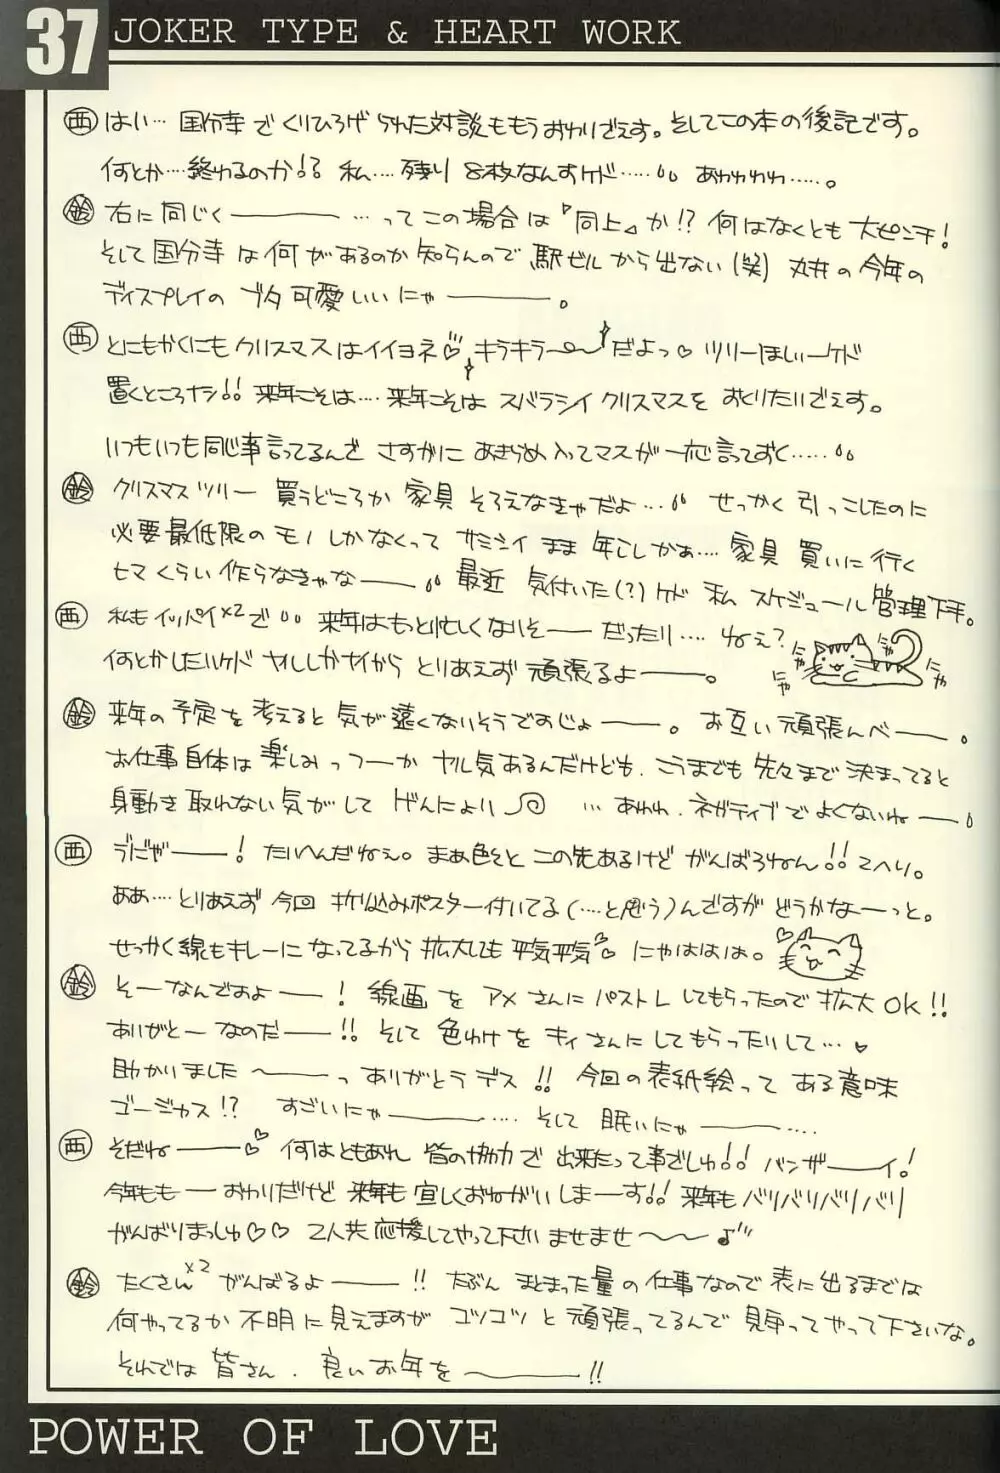 37 JOKER TYPE & HEART WORK
西 はい… 国分寺でくりひろげられた対談ももうおわりでえす。そしてこの本の後記です。
何とか…終わるのか!? 私…残り8枚なんすケド…… あわわわわ……。
鈴 右に同じく――― …ってこの場合は『同上』か!? 何はなくとも大ピンチ!
そして国分寺は何があるのか知らんので駅ビルから出ない(笑) 丸井の今年の
ディスプレイのブタ可愛いいにゃ―――。
西 とにもかくにもクリスマスはイイヨネ♡キラキラ〜だよっ♡ ツリーほしいーケド
置くところナシ!! 来年こそは…来年こそはスバラシイクリスマスをおくりたいでえす。
いつもいつも同じ事言ってるんでさすがにあきらめ入ってマスが一応言っておく……
鈴 クリスマスツリー買うどころか家具そろえなきゃだよ… せっかく引っこしたのに
必要最低限のモノしかなくってサミシイまま年こしかぁ…家具買いに行く
ヒマくらい作らなきゃな―― 最近気付いた(?)ケド私スケジュール管理下手。
西 私もイッパイ×2で 来年はもっと忙しくないそ――だったり… ねぇ?
何とかしたいケドヤルしかナイからとりあえず頑張るよ―――。
にゃ にゃ にゃ にゃ
鈴 来年の予定を考えると気が遠くなりそうですじょ――。お互い頑張んべ――。
お仕事自体は楽しみっつーかヤル気あるんだけども、こうまでも先々まで決まってると
身動き取れない気がしてげんにょり …あわわ、ネガティブでよくないね――
西 うだぁ――! たいへんだねぇ。まあ色々とこの先あるけどがんばろねん!! てへり。
ああ…とりあえず今回折り込みポスター付いてる(…と思う)んですがどうかなーっと。
せっかく線もキレーになってるから拡大しても平気平気♡ にゃははは。
鈴 そーなんですよ――! 線画をアメさんにパストレしてもらったので拡大OK!!
ありがとーなのだ――!! そして色わけをキィさんにしてもらったりして…♡
助かりました〜――っありがとうデス!! 今回の表紙絵ってある意味
ゴージャス!? すごいにゃ―――…. そして眠いにゃ―――….
西 そだね――♡ 何はともあれ皆の協力で出来たって事でしゅ!! バンザ――イ!
今年ももーおわりだけど来年も宜しくおねがいしまーす!! 来年もバリバリバリバリ
がんばりまっしゅ♡♡ 2人共応援してやって下さいませませ〜〜♪
鈴 たくさん×2 がんばるよ――!! たぶんまとまった量の仕事なので表に出るまでは
何やってるか不明に見えますがコツコツと頑張ってるんで見守ってやって下さいな。
それでは皆さん、良いお年を〜――!!
POWER OF LOVE